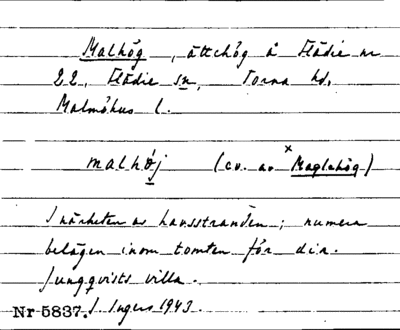 Malhög, ättehög å Flädie nr
22, Flädie sn, Torna hd,
Malmöhus l.
malhøj (cv. av ˣMaglehög)
I närheten av havsstranden; numera
belägen inom tomten för dir.
Ljungqvists villa.
Nr 5837. I. Ingers 1943.